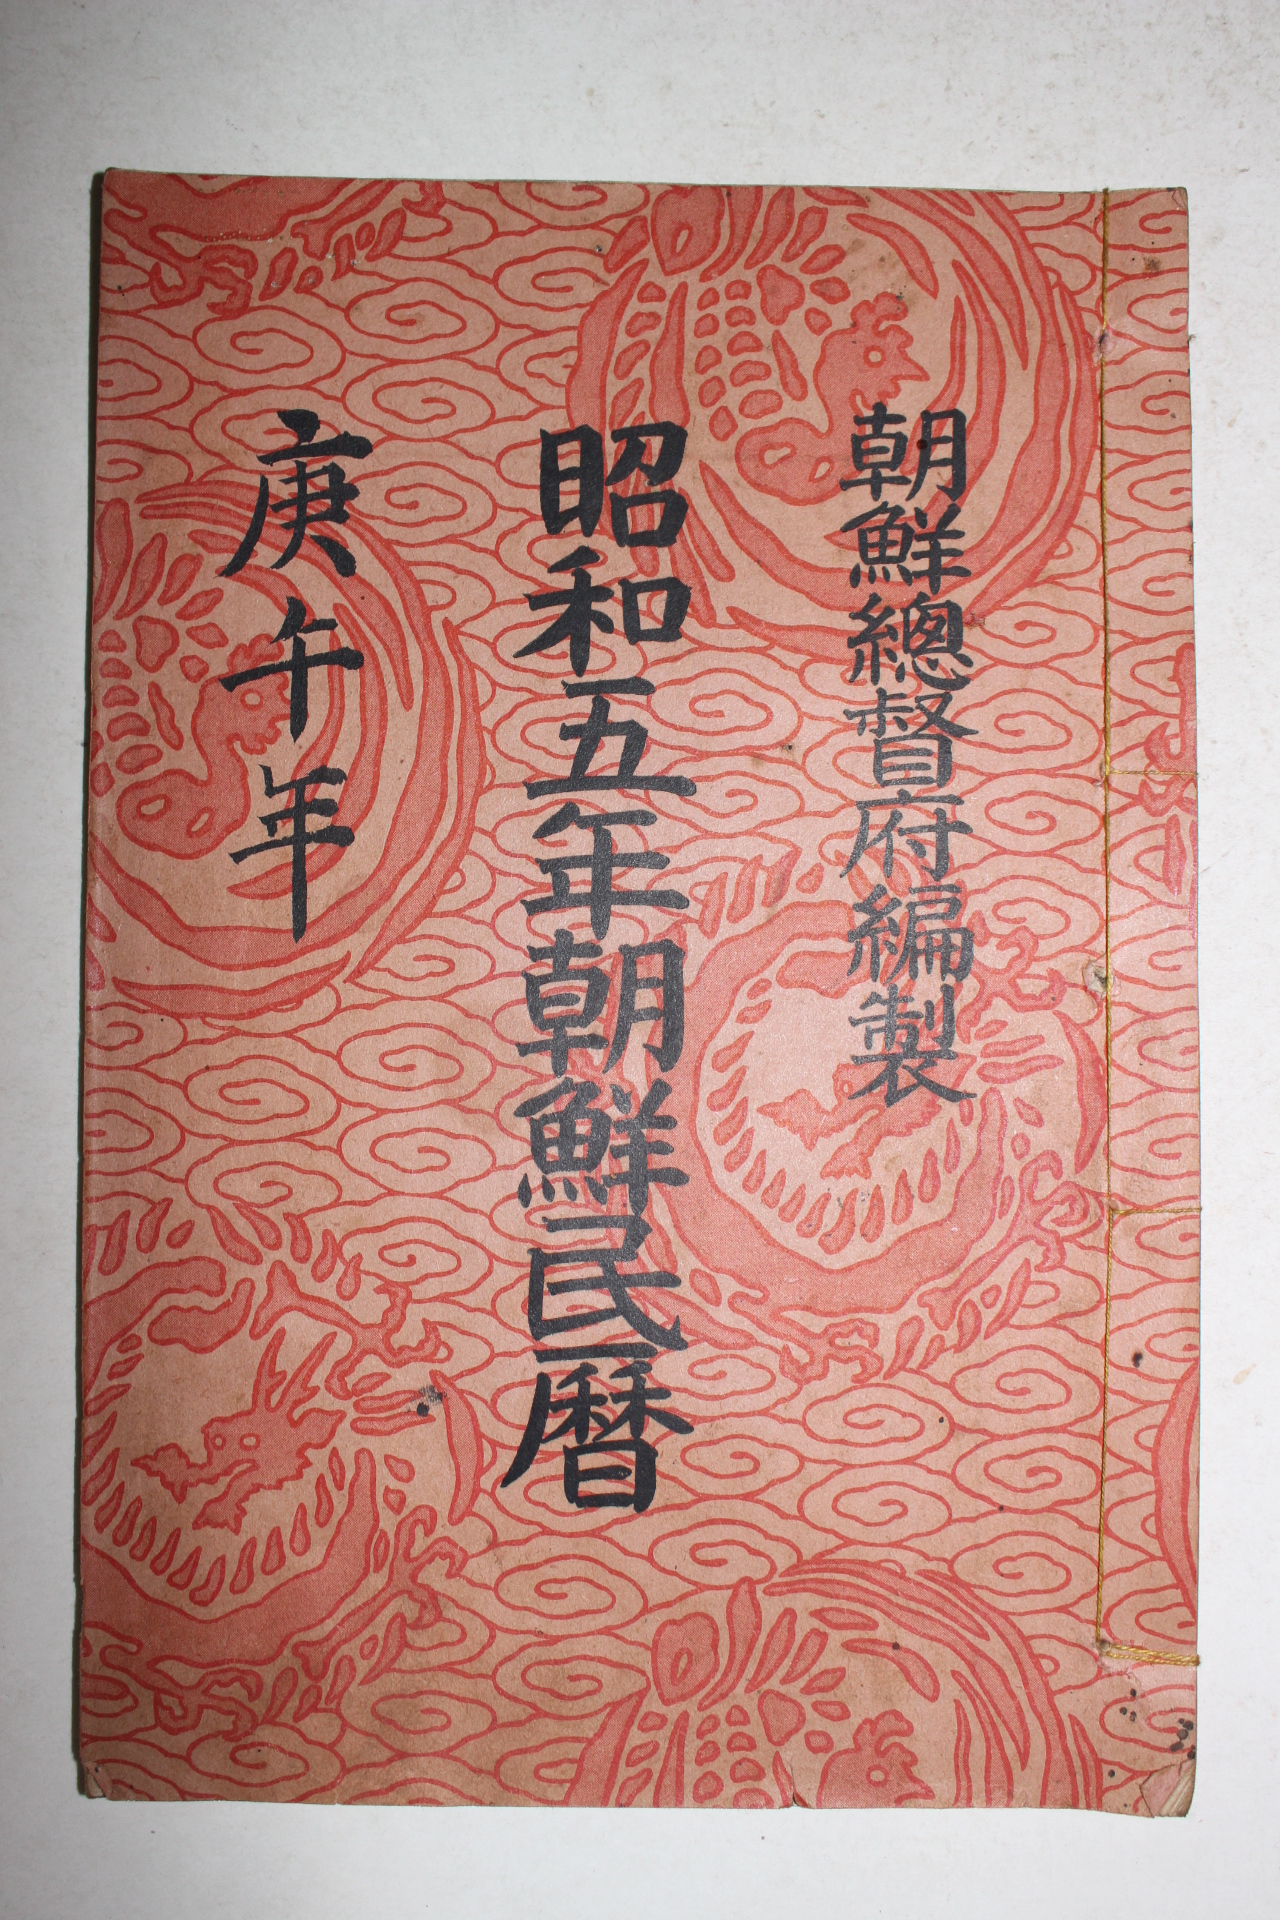 朝鮮總督府編製
昭和五年朝鮮民暦
庚午年